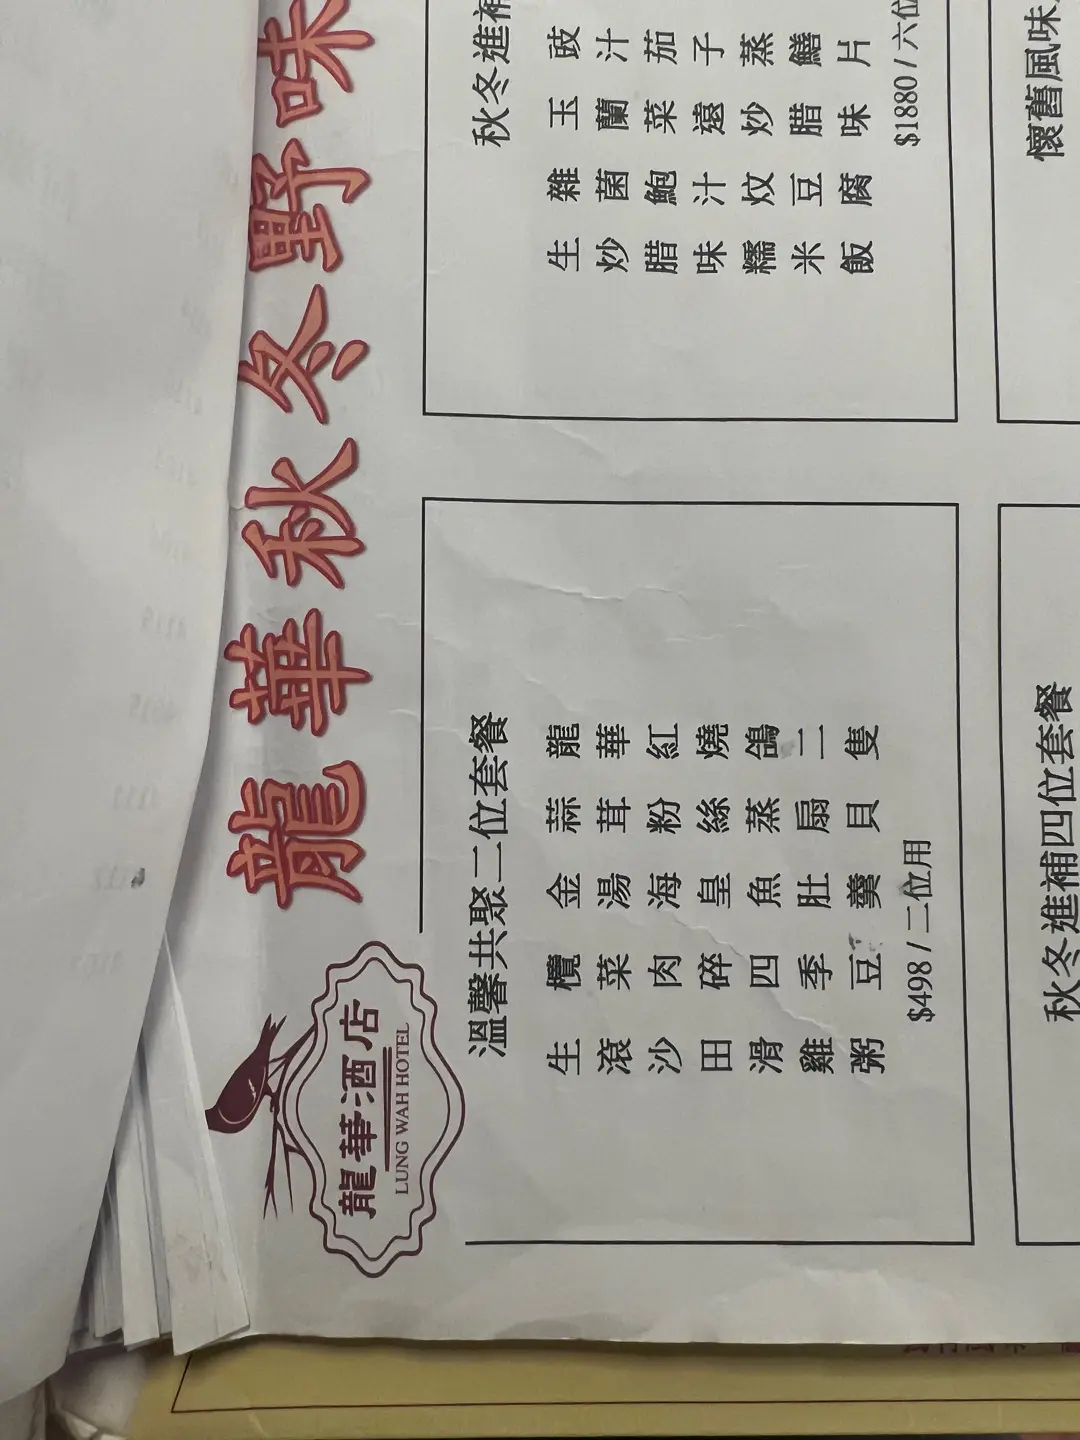 龍華酒店
LUNG WAH HOTEL
龍華秋冬野味
溫馨共聚二位套餐
龍華紅燒鴿二隻
蒜茸粉絲蒸扇貝
金湯海皇魚肚羹
欖菜肉碎四季豆
生滾沙田滑雞粥
$498 / 二位用
秋冬進補
豉汁茄子蒸鱔片
玉蘭菜遠炒腊味
雜菌鮑汁炆豆腐
生炒腊味糯米飯
$1880 / 六位
秋冬進補四位套餐
懷舊風味